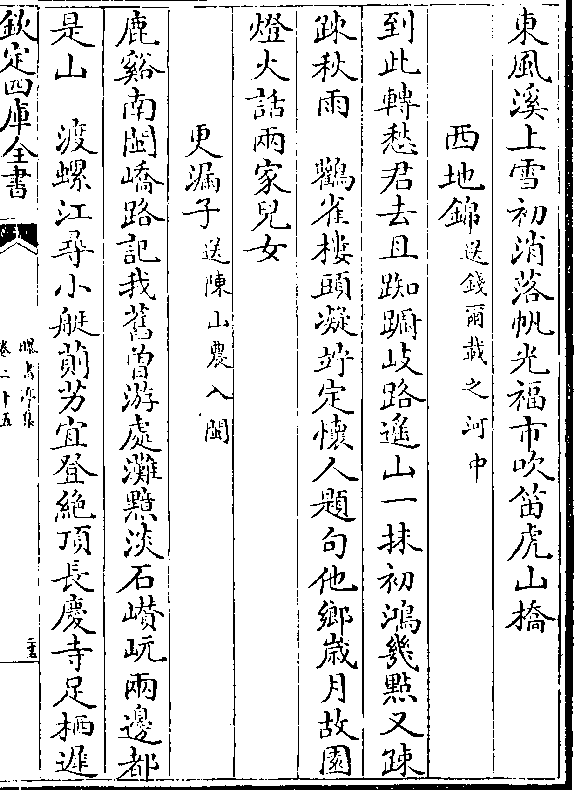 東風溪上雪初消落帆光福市吹笛虎山橋
西地錦送錢爾載之河中
到此轉愁君去且踟蹰岐路遥山一抹初鴻幾點又踈
踈秋雨　鸛雀樓頭凝竚定懷人題句他鄉歲月故園
燈火話兩家兒女
更漏子送陳山農入閩
鹿谿南閩嶠路記我舊曾游處灘黯淡石巑岏兩邊都
是山　渡螺江尋小艇荔芳宜登絶頂長慶寺足栖遲
欽定四庫全書
曝書亭集
卷二十五